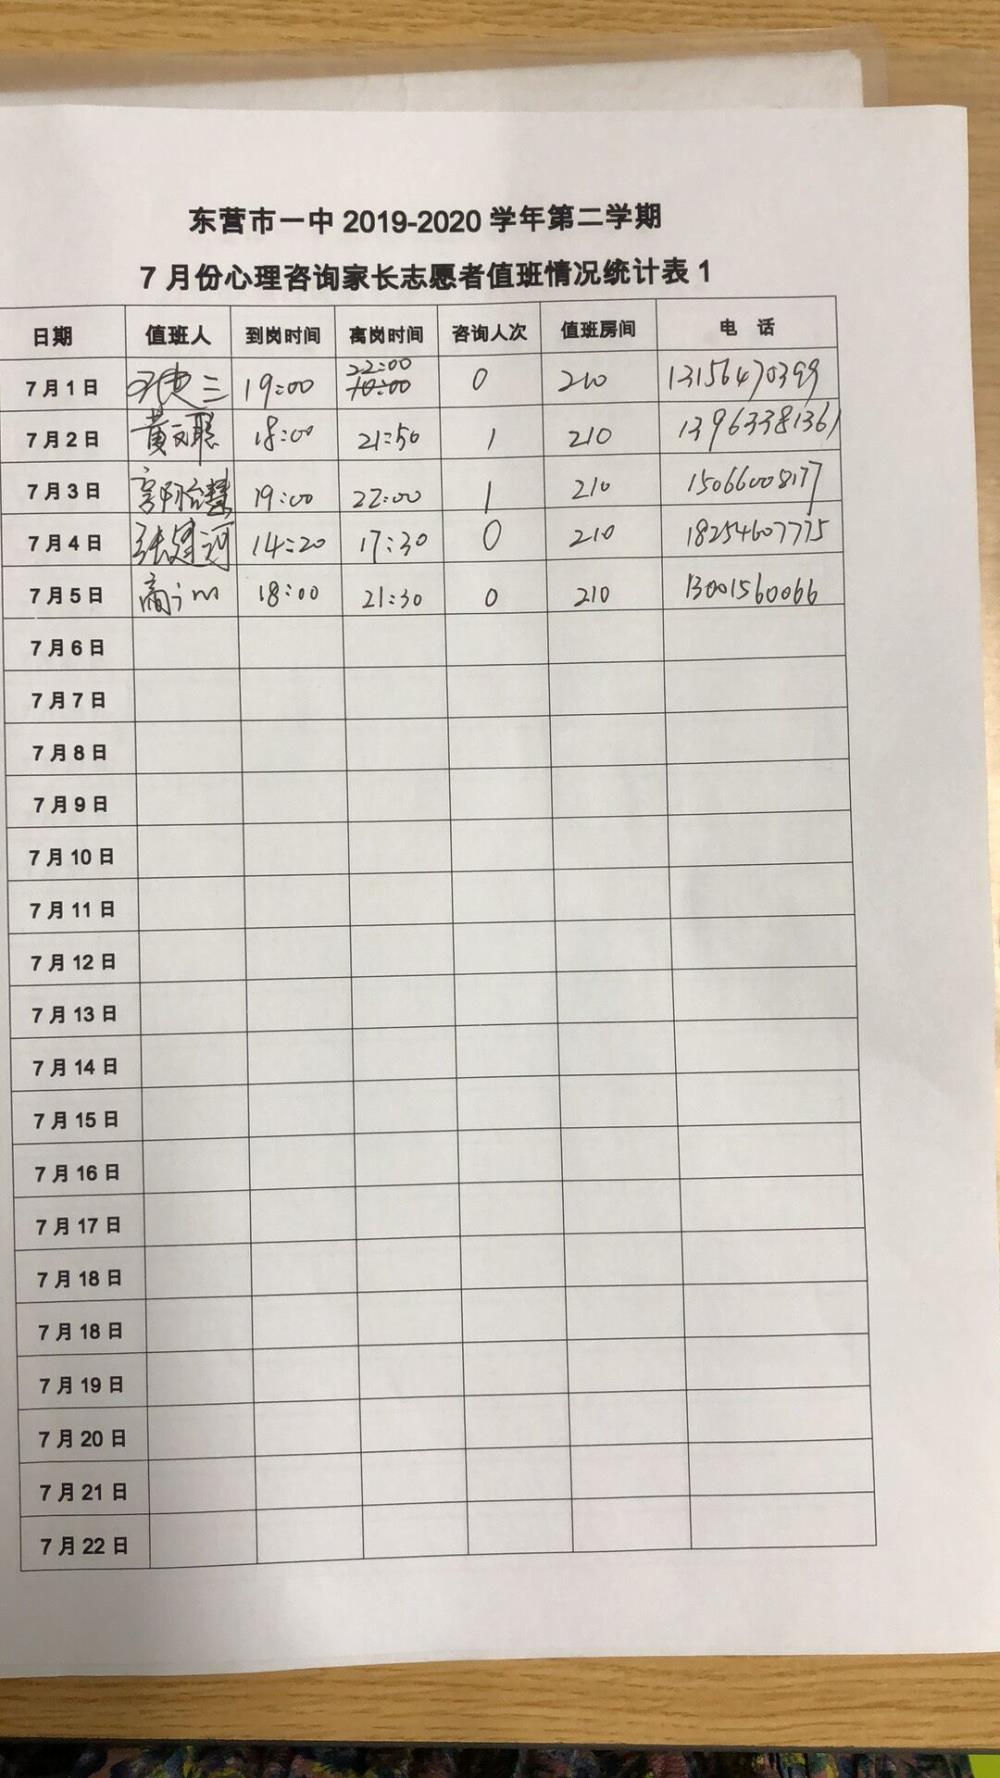 东营市一中 2019-2020 学年第二学期
7 月份心理咨询家长志愿者值班情况统计表 1
日期 值班人 到岗时间 离岗时间 咨询人次 值班房间 电 话
22:00
7 月 1 日 三 19:00 10:00 0 210 13156470399
7 月 2 日 黄文聪 18:00 21:50 1 210 13963381361
7 月 3 日 19:00 22:00 1 210 15066008177
7 月 4 日 张建河 14:20 17:30 0 210 18254607775
7 月 5 日 18:00 21:30 0 210 13001560066
7 月 6 日
7 月 7 日
7 月 8 日
7 月 9 日
7 月 10 日
7 月 11 日
7 月 12 日
7 月 13 日
7 月 14 日
7 月 15 日
7 月 16 日
7 月 17 日
7 月 18 日
7 月 18 日
7 月 19 日
7 月 20 日
7 月 21 日
7 月 22 日